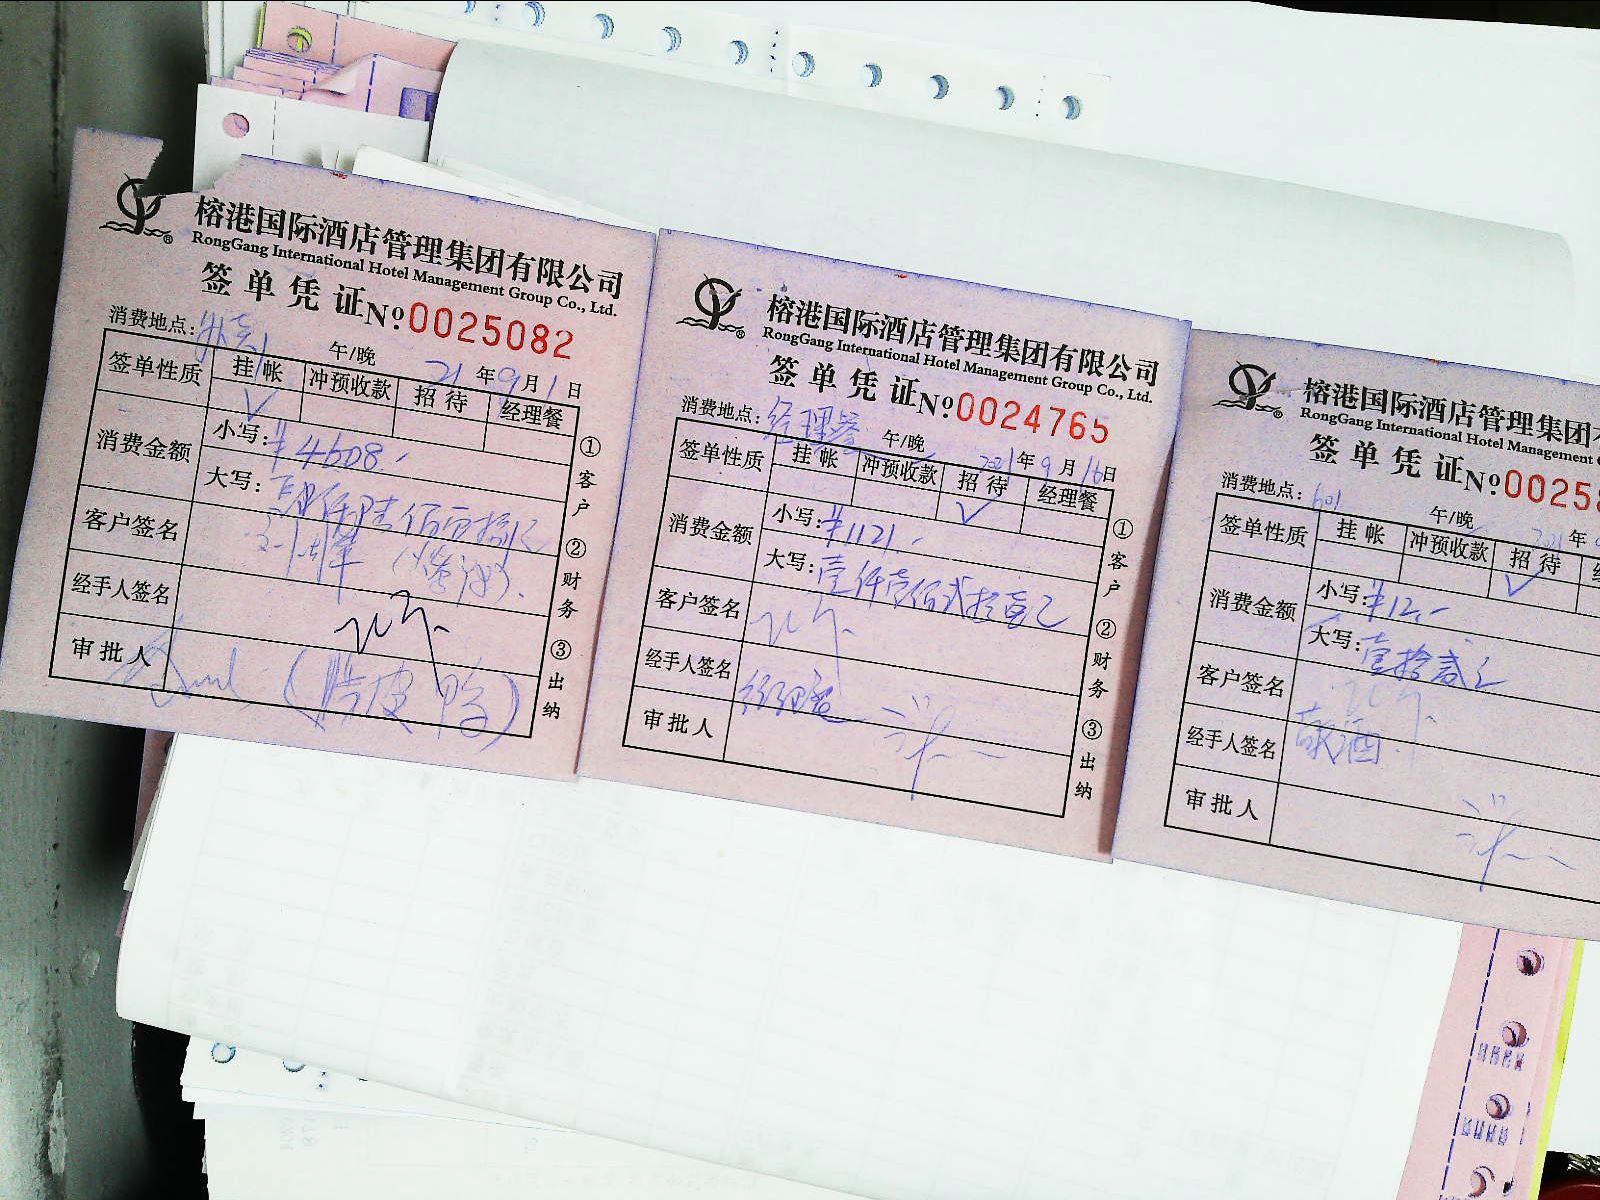 榕港国际酒店管理集团有限公司
RongGang International Hotel Management Group Co., Ltd.
签单凭证 № 0025082
消费地点:
午/晚 21年9月1日
签单性质 挂帐 冲预收款 招待 经理餐
✓
消费金额 小写:¥4608.-
大写:
客户签名
经手人签名
审批人
①客户 ②财务 ③出纳
榕港国际酒店管理集团有限公司
RongGang International Hotel Management Group Co., Ltd.
签单凭证 № 0024765
消费地点:经理餐
午/晚 2021年9月16日
签单性质 挂帐 冲预收款 招待 经理餐
✓
消费金额 小写:¥1121.-
大写:壹仟壹佰贰拾壹元
客户签名
经手人签名
审批人
①客户 ②财务 ③出纳
榕港国际酒店管理集团
RongGang International Hotel Management
签单凭证 № 0025
消费地点:601
午/晚 2021年
签单性质 挂帐 冲预收款 招待
✓
消费金额 小写:¥12.-
大写:壹拾贰元
客户签名
经手人签名 敬酒
审批人